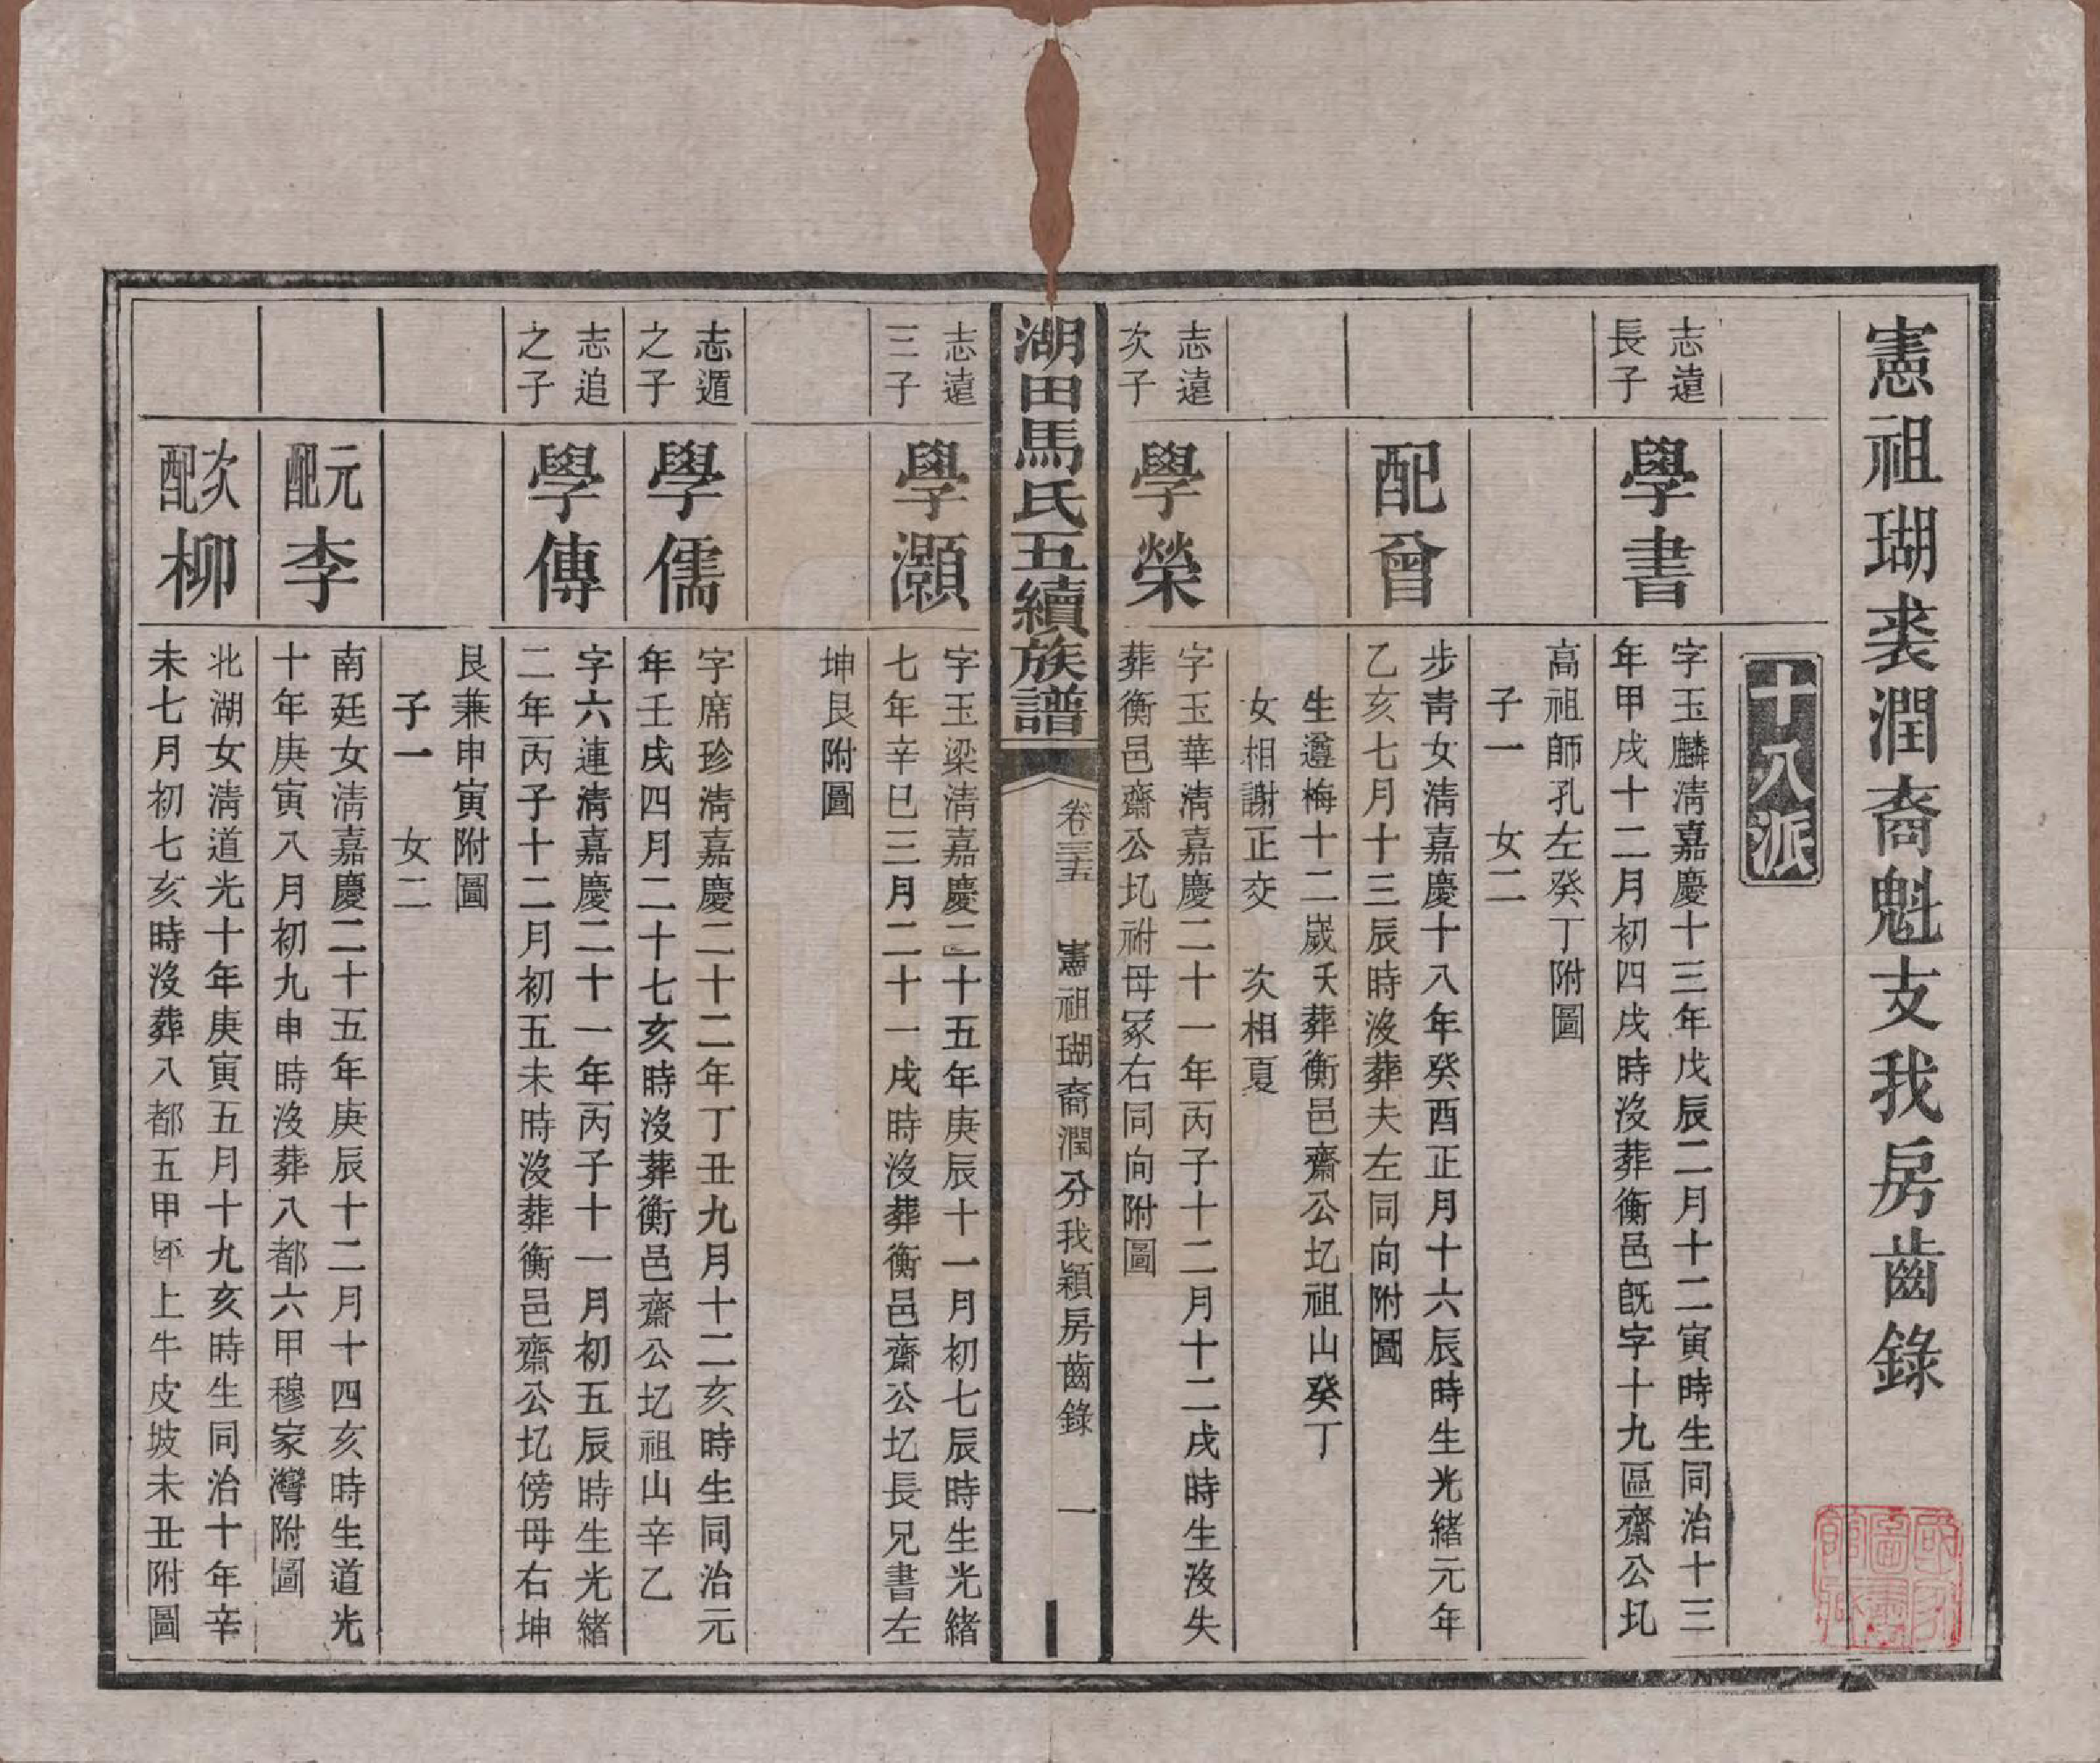 憲祖瑚裘潤裔魁支我房齒錄
十八派
志遠
長子
學書
字玉麟淸嘉慶十三年戊辰二月十二寅時生同治十三
年甲戌十二月初四戌時沒葬衡邑旣字十九區齋公圠
高祖師孔左癸丁附圖
子一　女二
配曾
步靑女淸嘉慶十八年癸酉正月十六辰時生光緒元年
乙亥七月十三辰時沒葬夫左同向附圖
生遵梅十二歲夭葬衡邑齋公圠祖山癸丁
女相謝正交　次相夏
志遠
次子
學榮
字玉華淸嘉慶二十一年丙子十二月十二戌時生沒失
葬衡邑齋公圠祔母冢右同向附圖
湖田馬氏五續族譜
卷三十五　憲祖瑚裔潤分我穎房齒錄　一
志遠
三子
學灝
字玉梁淸嘉慶二十五年庚辰十一月初七辰時生光緒
七年辛巳三月二十一戌時沒葬衡邑齋公圠長兄書左
坤艮附圖
志遁
之子
學儒
字席珍淸嘉慶二十二年丁丑九月十二亥時生同治元
年壬戌四月二十七亥時沒葬衡邑齋公圠祖山辛乙
志追
之子
學傳
字六連淸嘉慶二十一年丙子十一月初五辰時生光緒
二年丙子十二月初五未時沒葬衡邑齋公圠傍母右坤
艮兼申寅附圖
子一　女二
元配李
南廷女淸嘉慶二十五年庚辰十二月十四亥時生道光
十年庚寅八月初九申時沒葬八都六甲穆家灣附圖
次配柳
北湖女淸道光十年庚寅五月十九亥時生同治十年辛
未七月初七亥時沒葬八都五甲上牛皮坡未丑附圖